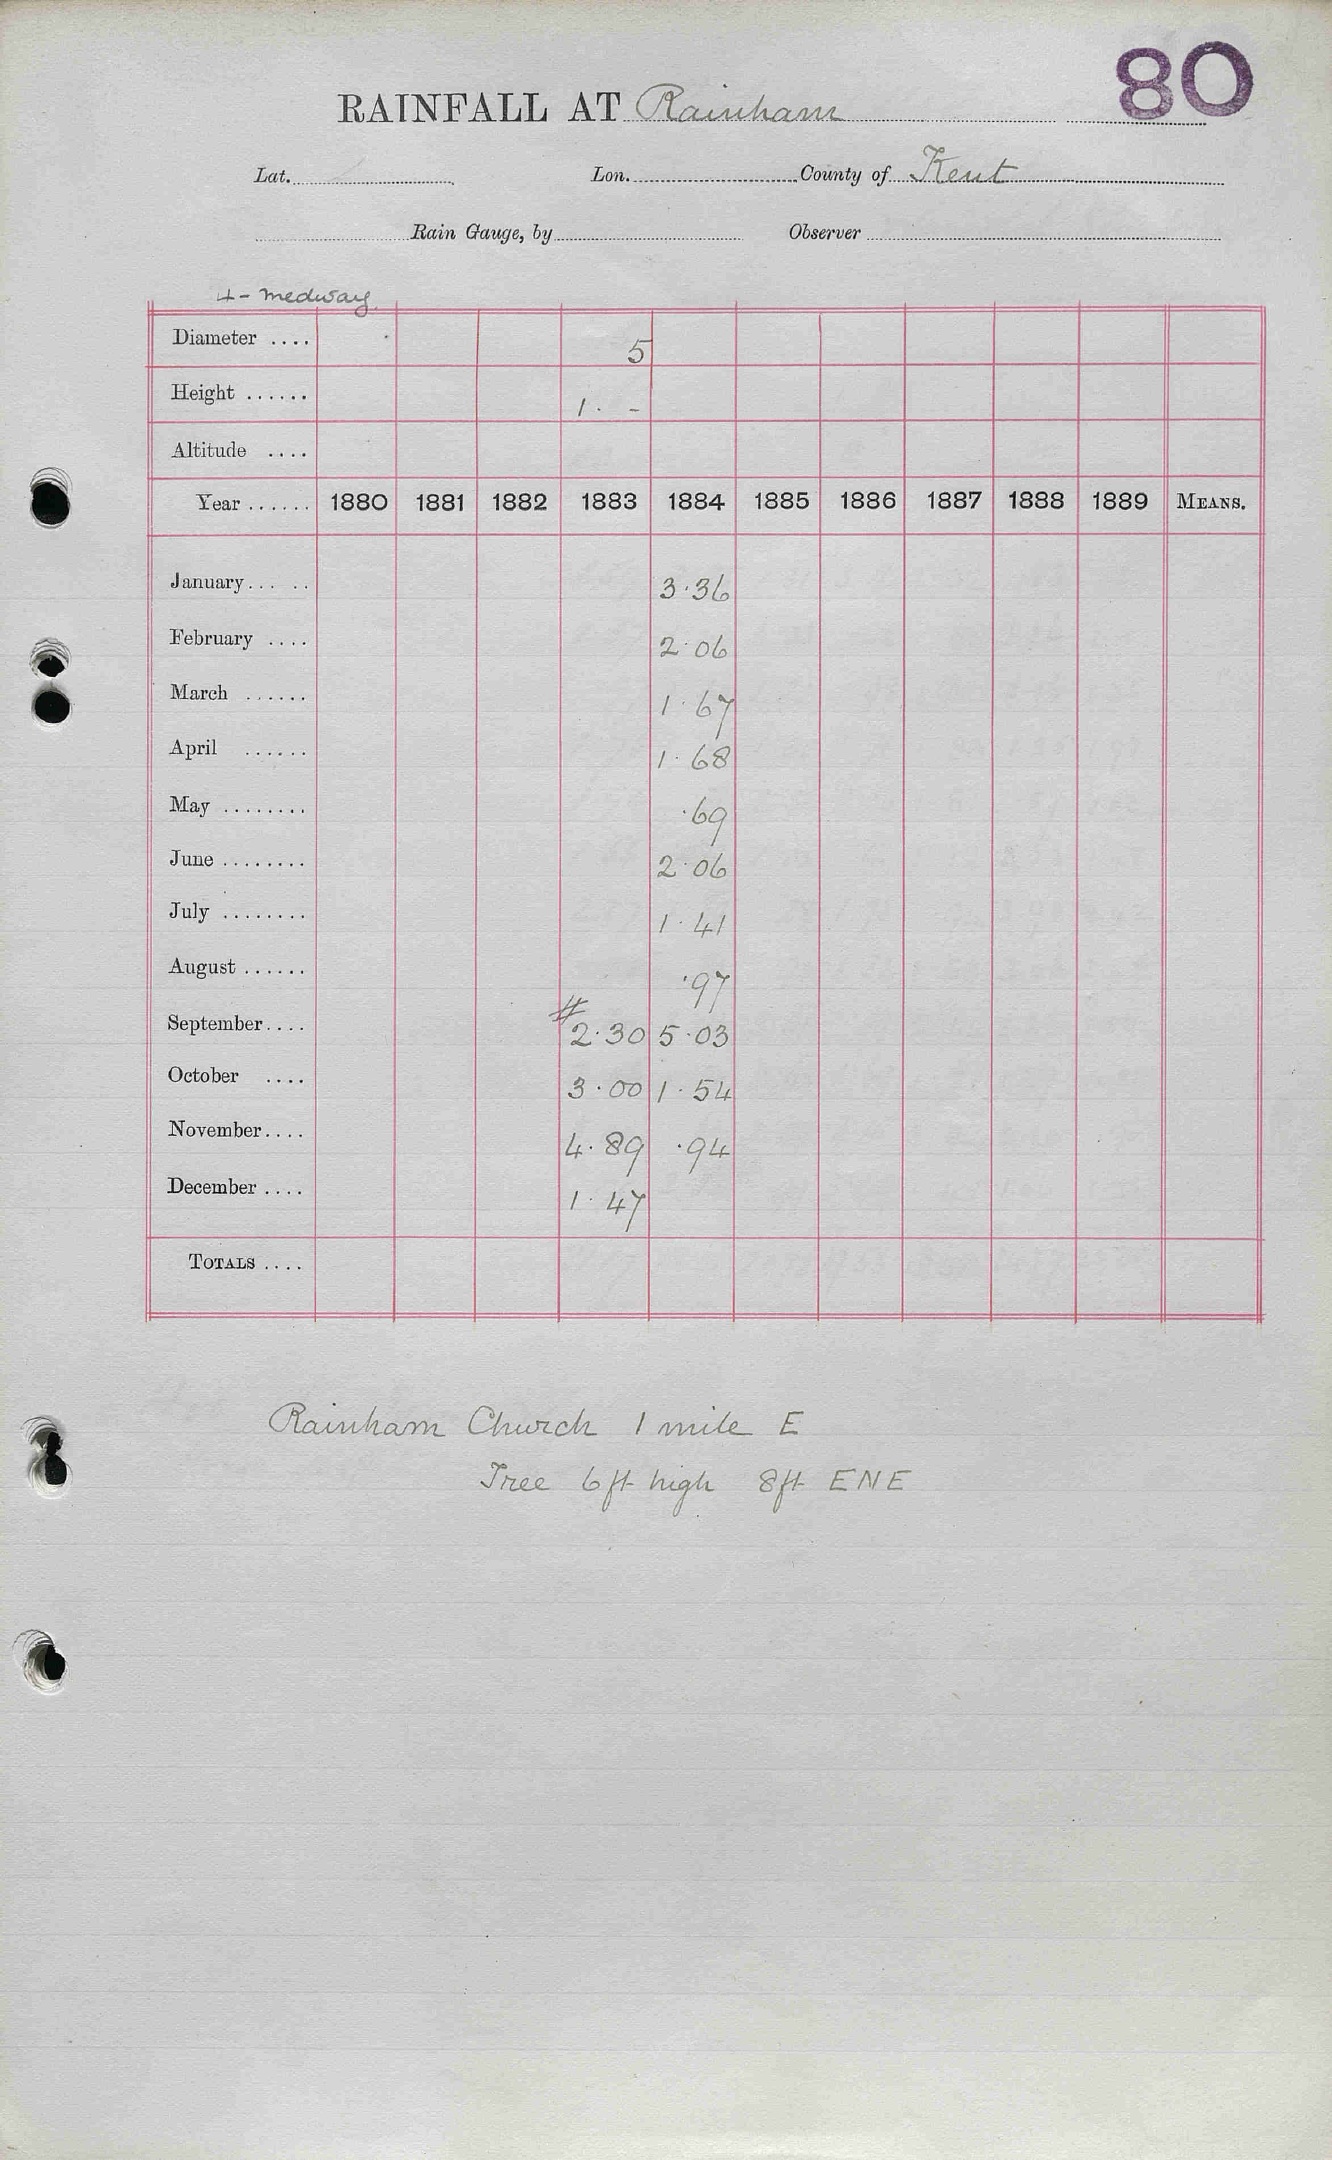 80
RAINFALL AT Rainham
Lat. Lon. County of Kent
Rain Gauge, by Observer
4 - Medway
Diameter .... 5
Height ...... 1 . -
Altitude ....
Year ...... 1880 1881 1882 1883 1884 1885 1886 1887 1888 1889 MEANS.
January... .. 3.36
February .... 2.06
March ...... 1.67
April ...... 1.68
May ........ .69
June ........ 2.06
July ........ 1.41
August ...... .97
September.... # 2.30 5.03
October .... 3.00 1.54
November.... 4.89 .94
December .... 1.47
TOTALS ....
Rainham Church 1 mile E
Tree 6ft high 8ft ENE